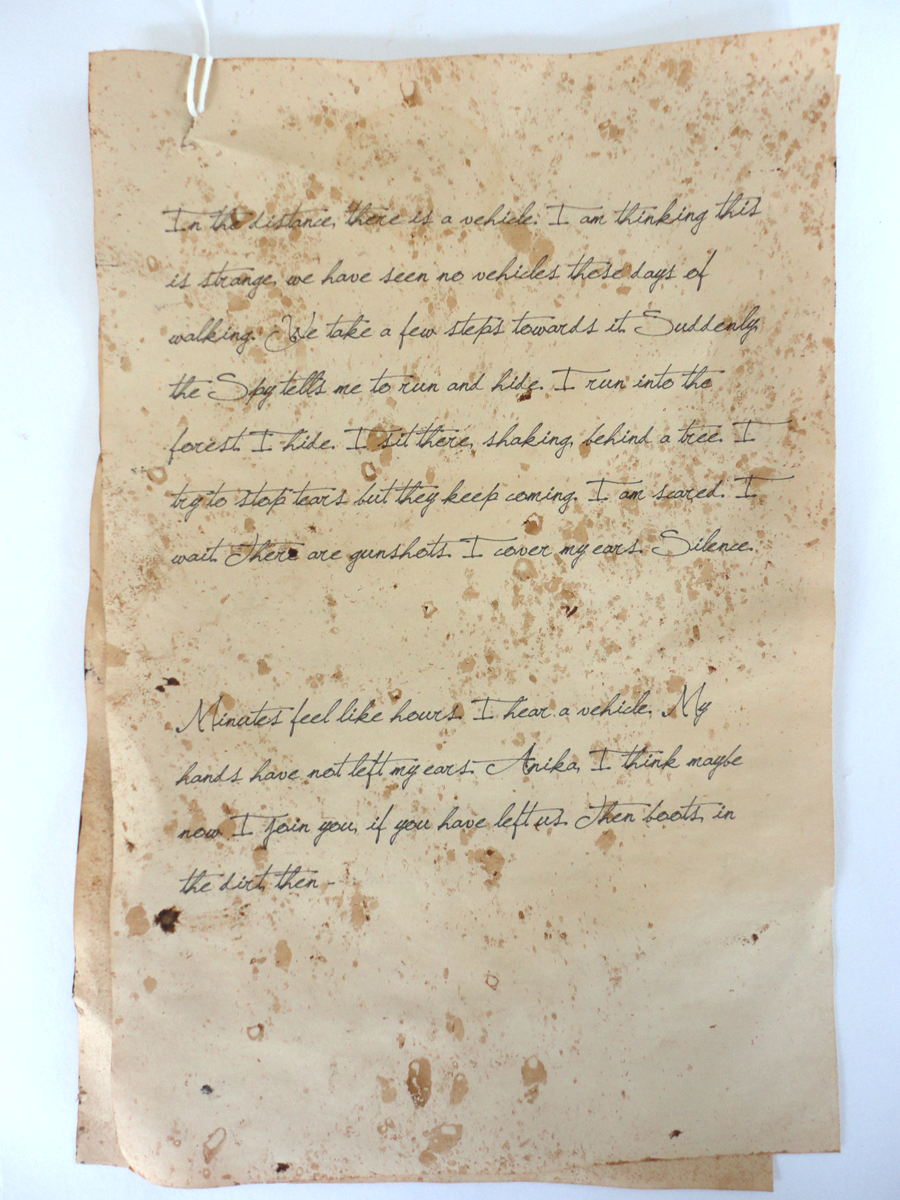 In the distance, there is a vehicle. I am thinking this
is strange, we have seen no vehicles these days of
walking. We take a few steps towards it. Suddenly,
the Spy tells me to run and hide. I run into the
forest. I hide. I sit there, shaking, behind a tree. I
try to stop tears but they keep coming. I am scared. I
wait. There are gunshots. I cover my ears. Silence.
Minutes feel like hours. I hear a vehicle. My
hands have not left my ears. Anika, I think maybe
now I join you, if you have left us. Then boots in
the dirt, then -